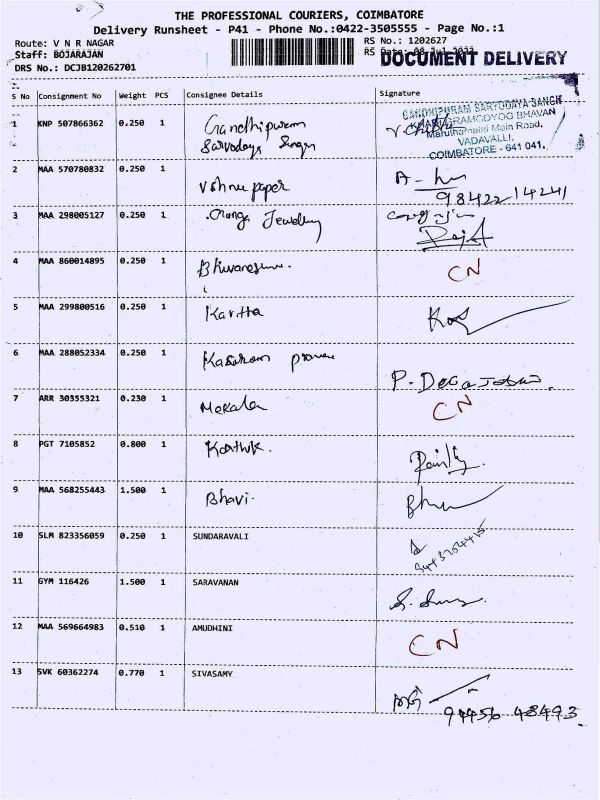 THE PROFESSIONAL COURIERS, COIMBATORE
Delivery Runsheet - P41 - Phone No.:0422-3505555 - Page No.:1
Route: V N R NAGAR
RS No.: 1202627
Staff: BOJARAJAN
RS Date:
DOCUMENT DELIVERY
DRS No.: DCJB120262701
S No Consignment No Weight PCS Consignee Details Signature
1 KNP 507866362 0.250 1 Gandhipuram
Sarvodaya Sangh
GANDHIPURAM SARVODAYA SANGH
GRAMODYOG BHAVAN
Maruthamalai Main Road,
VADAVALLI,
COIMBATORE - 641 041.
2 MAA 570780832 0.250 1 Vishnu paper
98422 14241
3 MAA 298005127 0.250 1 Ganga Jewellery
4 MAA 860014895 0.250 1 Bhuvaneswari
CN
5 MAA 299800516 0.250 1 Kavitha
6 MAA 288052334 0.250 1
7 ARR 30355321 0.230 1 Mekala
CN
8 PGT 7105852 0.800 1 Karthik.
9 MAA 568255443 1.500 1 Bhavi.
10 SLM 823356059 0.250 1 SUNDARAVALI
11 GYM 116426 1.500 1 SARAVANAN
12 MAA 569664983 0.510 1 AMUDHINI
CN
13 SVK 60362274 0.770 1 SIVASAMY
94456 48493